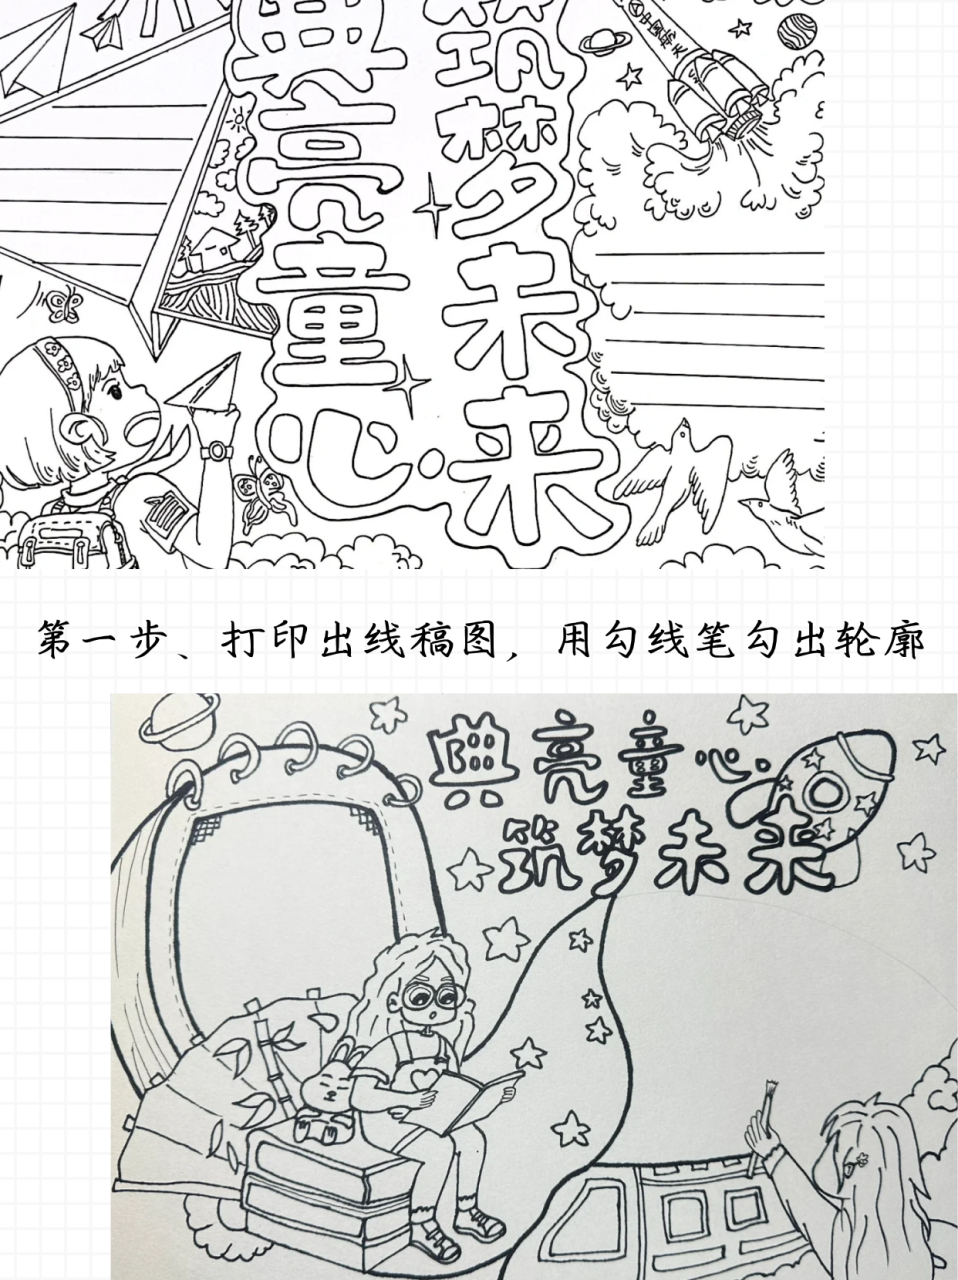 典亮童心
筑梦未来
中国航天
第一步、打印出线稿图，用勾线笔勾出轮廓
典亮童心
筑梦未来